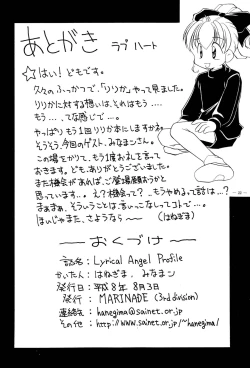 あとがき ラブ ハート
☆はい! どもです。
久々のふっかつで、「りりか」やって見ました。
りりかに対する想いは、それはもう....
もう...、てな感じで...。
やっぱりもう1回リリカ本にしますかネ。
そうそう、今回のゲスト、みなまンさん。
この場をかりて、もう1度お礼を言って
おきます。ども、ありがとうございました。
また機会があれば、ご登場願おうかと
思っています..。え?機会って?_もうやめるって話は...?
まぁまぁ、そういうことは、言いっこなしってコトで...。
ほんじゃまた、さようなら〜 (はねぎま)
〜おくづけ〜
誌名:Lyrical Angel Profile
かいたん:はねぎま、みなマン
発行日:平成8年 8月3日
発行:MARINADE (3rd division)
連絡舎:hanegima@sainet.or.jp
その他:http://www.sainet.or.jp/~hanegima/